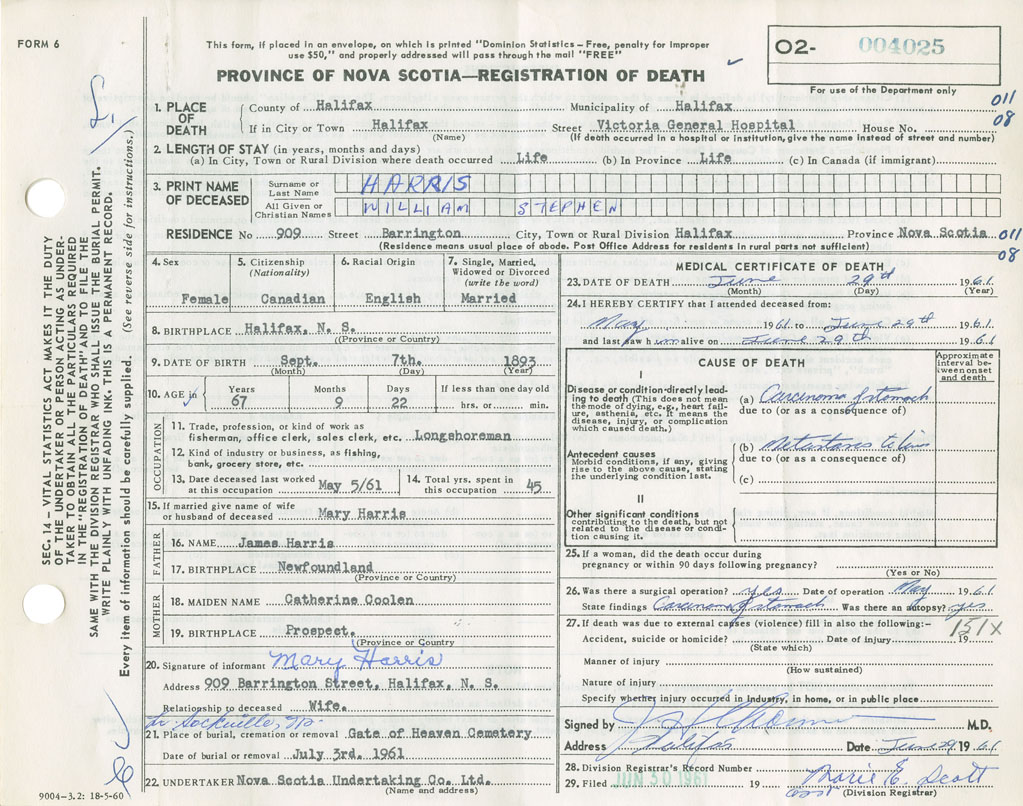 FORM 6
This form, if placed in an envelope, on which is printed "Dominion Statistics – Free, penalty for improper
use $50," and properly addressed will pass through the mail "FREE"
PROVINCE OF NOVA SCOTIA—REGISTRATION OF DEATH
02- 004025
For use of the Department only
011
08
SEC. 14 – VITAL STATISTICS ACT MAKES IT THE DUTY
OF THE UNDERTAKER OR PERSON ACTING AS UNDER-
TAKER TO OBTAIN ALL THE PARTICULARS REQUIRED
IN THE "REGISTRATION OF DEATH" AND TO FILE THE
SAME WITH THE DIVISION REGISTRAR WHO SHALL ISSUE THE BURIAL PERMIT.
WRITE PLAINLY WITH UNFADING INK. THIS IS A PERMANENT RECORD.
Every item of information should be carefully supplied. (See reverse side for instructions.)
1. PLACE OF DEATH
County of Halifax Municipality of Halifax
If in City or Town Halifax Street Victoria General Hospital House No.
(Name) (If death occurred in a hospital or institution, give the name instead of street and number)
2. LENGTH OF STAY (in years, months and days)
(a) In City, Town or Rural Division where death occurred Life (b) In Province Life (c) In Canada (if immigrant)
3. PRINT NAME OF DECEASED
Surname or Last Name HARRIS
All Given or Christian Names WILLIAM STEPHEN
RESIDENCE No 909 Street Barrington City, Town or Rural Division Halifax Province Nova Scotia 011
(Residence means usual place of abode. Post Office Address for residents in rural parts not sufficient) 08
4. Sex Female
5. Citizenship (Nationality) Canadian
6. Racial Origin English
7. Single, Married, Widowed or Divorced (write the word) Married
8. BIRTHPLACE Halifax, N. S.
(Province or Country)
9. DATE OF BIRTH Sept. 7th. 1893
(Month) (Day) (Year)
10. AGE in Years 67 Months 9 Days 22 If less than one day old hrs. or min.
OCCUPATION
11. Trade, profession, or kind of work as
fisherman, office clerk, sales clerk, etc. Longshoreman
12. Kind of industry or business, as fishing,
bank, grocery store, etc.
13. Date deceased last worked at this occupation May 5/61
14. Total yrs. spent in this occupation 45
15. If married give name of wife
or husband of deceased Mary Harris
FATHER
16. NAME James Harris
17. BIRTHPLACE Newfoundland
(Province or Country)
MOTHER
18. MAIDEN NAME Catherine Coolen
19. BIRTHPLACE Prospect.
(Province or Country
20. Signature of informant Mary Harris
Address 909 Barrington Street, Halifax, N. S.
Relationship to deceased Wife.
Sackville,
21. Place of burial, cremation or removal Gate of Heaven Cemetery
Date of burial or removal July 3rd. 1961
22. UNDERTAKER Nova Scotia Undertaking Co. Ltd.
(Name and address)
9004–3.2: 18-5-60
MEDICAL CERTIFICATE OF DEATH
23. DATE OF DEATH June 29th 1961
(Month) (Day) (Year)
24. I HEREBY CERTIFY that I attended deceased from:
May 1961 to June 29th 1961
and last saw him alive on June 29th 1961
CAUSE OF DEATH
Approximate interval between onset and death
I
Disease or condition directly lead-
ing to death (This does not mean
the mode of dying, e.g., heart fail-
ure, asthenia, etc. It means the
disease, injury, or complication
which caused death.)
(a) Carcinoma of stomach
due to (or as a consequence of)
Antecedent causes
Morbid conditions, if any, giving
rise to the above cause, stating
the underlying condition last.
(b) Metastases to liver
due to (or as a consequence of)
(c)
II
Other significant conditions
contributing to the death, but not
related to the disease or condi-
tion causing it.
25. If a woman, did the death occur during
pregnancy or within 90 days following pregnancy?
(Yes or No)
26. Was there a surgical operation? yes Date of operation May 1961
State findings Carcinoma of stomach Was there an autopsy? yes
27. If death was due to external causes (violence) fill in also the following:– 151X
Accident, suicide or homicide? Date of injury 19
(State which)
Manner of injury
(How sustained)
Nature of injury
Specify whether injury occurred in Industry, in home, or in public place
Signed by M.D.
Address Halifax Date June 29 1961
28. Division Registrar's Record Number
29. Filed JUN 30 1961 19 Marie E. Scott
asst (Division Registrar)